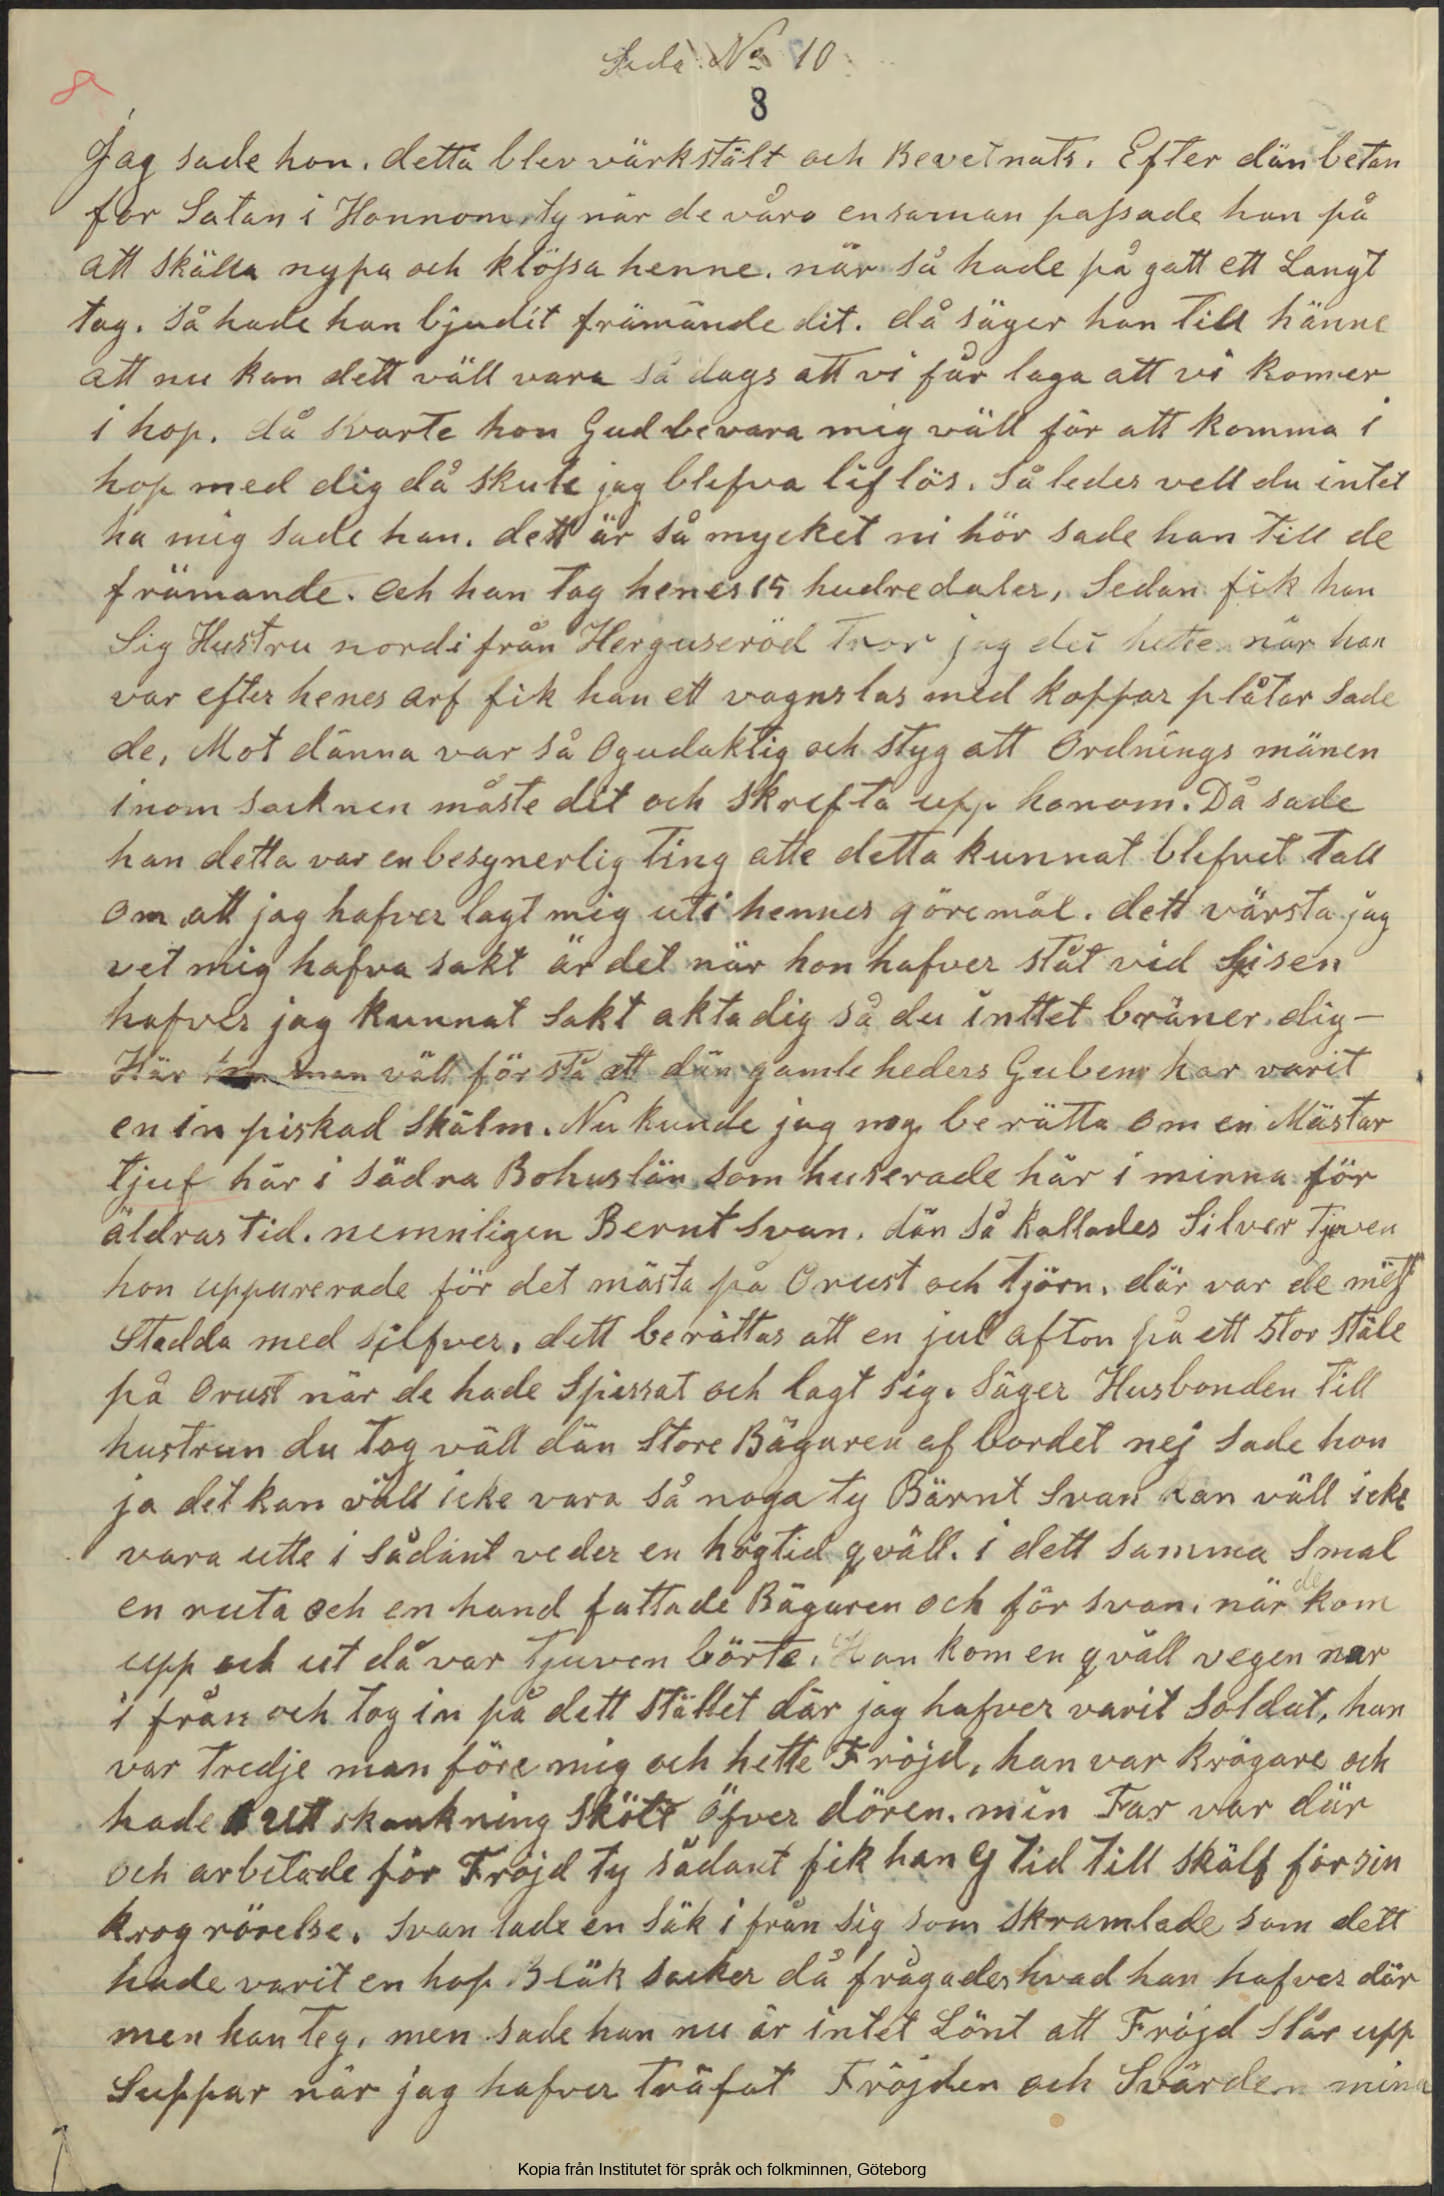 Sida No 10
8
8
Jag sade hon. detta blev värkstält och Bevetnats. Efter dän betan
for Satan i Honnom, ty när de våro ensaman passade han på
att skälla nypa och klössa henne. när så hade på gatt ett Langt
tag. så hade han bjudit främande dit. då säger han Till hänne
att nu kan dett väll vara så dags att vi får laga att vi komer
i hop. då svarte hon Gud bevara mig väll för att komma i
hop med dig då skule jag blefva lif lös. Så ledes vell du intet
ha mig sade han. dett är så mycket ni hör sade han Till de
främande. och han tog henes 15 hudredaler, Sedan fik han
Sig Hustru nordi från Herguseröd Tror jag det hette når han
var efter henes arf fik han ett vagnslas med koppar plåtar sade
de, Mot dänna var så Ogudaktig och styg att Ordnings mänen
inom socknen måste dit och skrefta upp honom. Då sade
han detta var en besynerlig Ting atte detta kunnat blefvet Tall
om att jag hafver lagt mig uti hennes göremål. dett värsta jag
vet mig hafva sakt är det när hon hafver ståt vid Spisen
hafver jag kunnat sakt akta dig så du inttet bräner dig –
Här man väll förstå att dän gamle heders Guben har varit
en in piskad Skälm. Nu kunde jag nog berätta om en Mästar
tjuf här i södra Bohuslän som huserade här i minna för
äldras tid. nemnligen Bernt Svan. dän så kallades Silver Tjuven
hon uppurerade för det mästa på Orust och Tjörn. där var de mest
Stadda med silfver. dett berättas att en jul afton på ett stor ställe
på Orust när de hade Spissat och lagt sig. Säger Husbonden Till
hustrun du Tog väll dän Store Bägaren af bordet nej sade hon
ja det kan väll icke vara så noga ty Bärnt Svan kan väll icke
vara utte i sådant veder en högtid qväll. i dett samma Smal
en ruta och en hand fattade Bägaren och för svan. när de kom
upp och ut då var Tjuven börte. Han kom en qväll vegen nor
i från och tog in på dett Stället där jag hafver varit Soldat, han
var tredje man före mig och hette Fröjd, han var krögare och
hade utt skankning Skölt öfver dören. min Far var där
och arbetade för Fröjd ty sådant fik han Ej tid till skälf för sin
krog rörelse. Svan lade en säk i från sig som skramlade som dett
hade varit en hop Bläk saker då frågades hvad han hafver där
men han Teg, men sade han nu är intet Lönt att Fröjd Slår upp
Suppar när jag hafver Träfat Fröjden och Svärden mina
Kopia från Institutet för språk och folkminnen, Göteborg